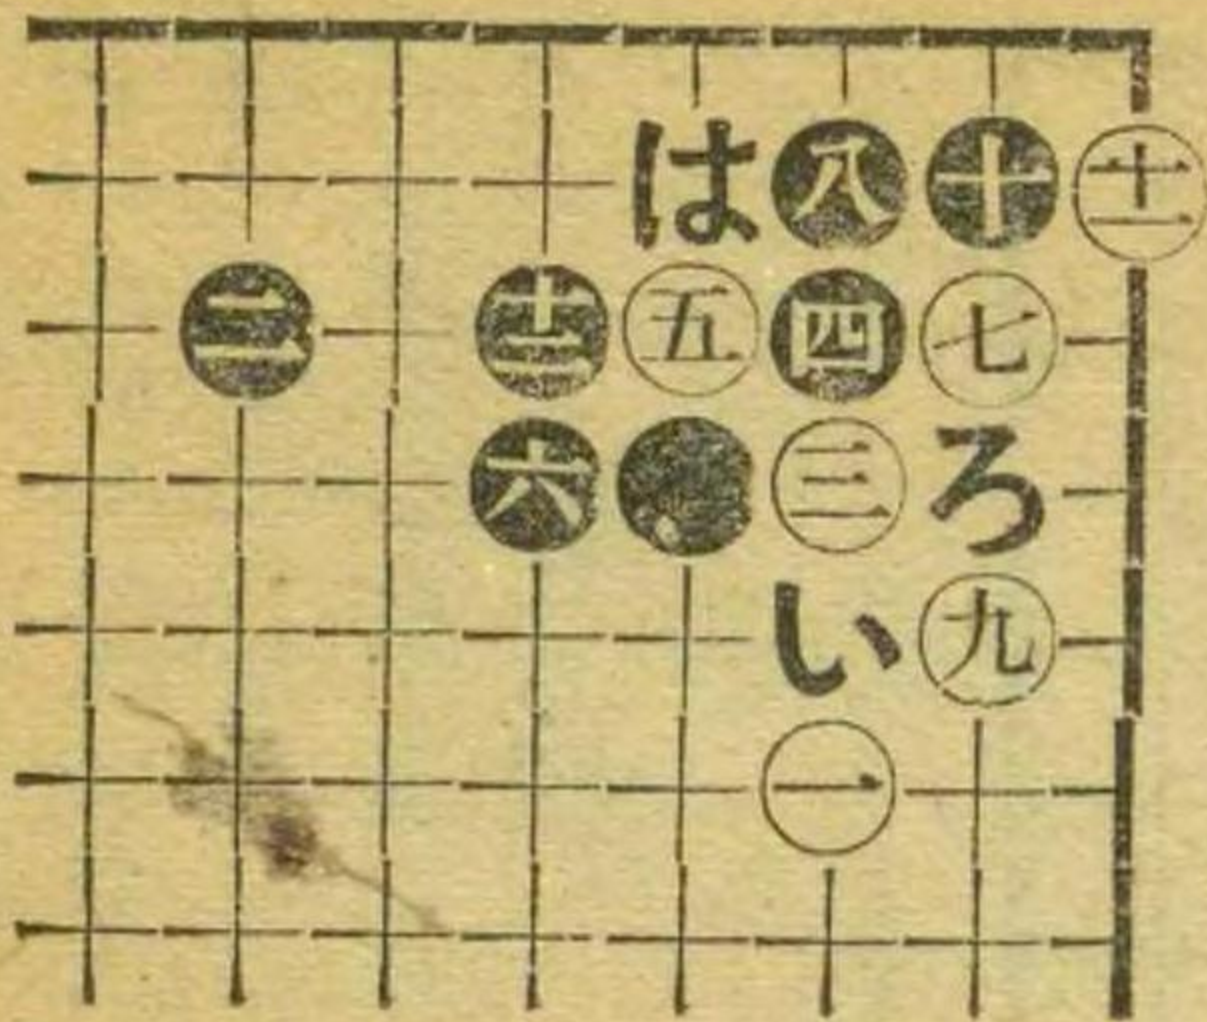 は 八 十 十一
二 十二 五 四 七
六 三 ろ
い 九
一